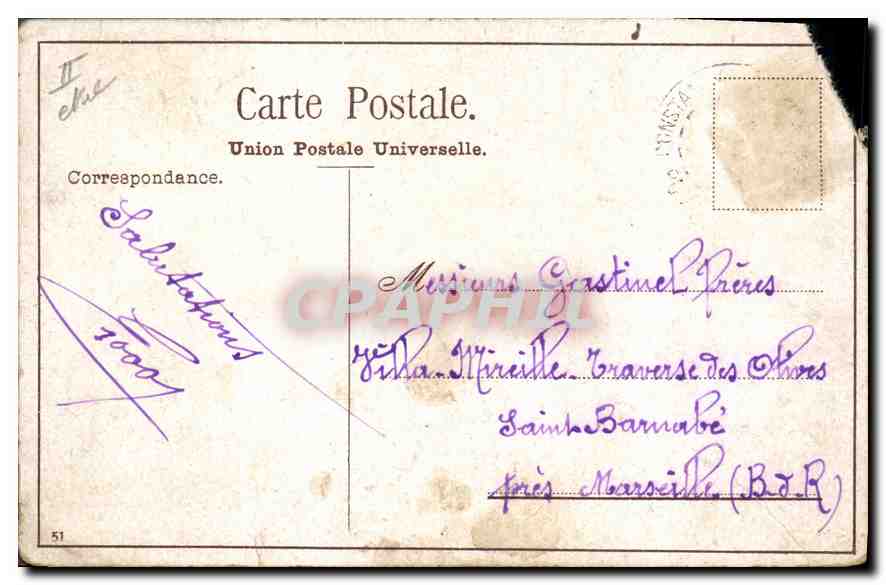 II
Carte Postale.
Union Postale Universelle.
Correspondance.
CONSTA
Salutations
1000
Messieurs Gastinel frères
Villa-Mireille-Traverse des Olives
Saint Barnabé
près Marseille (B-d-R)
CPAPHIL
51